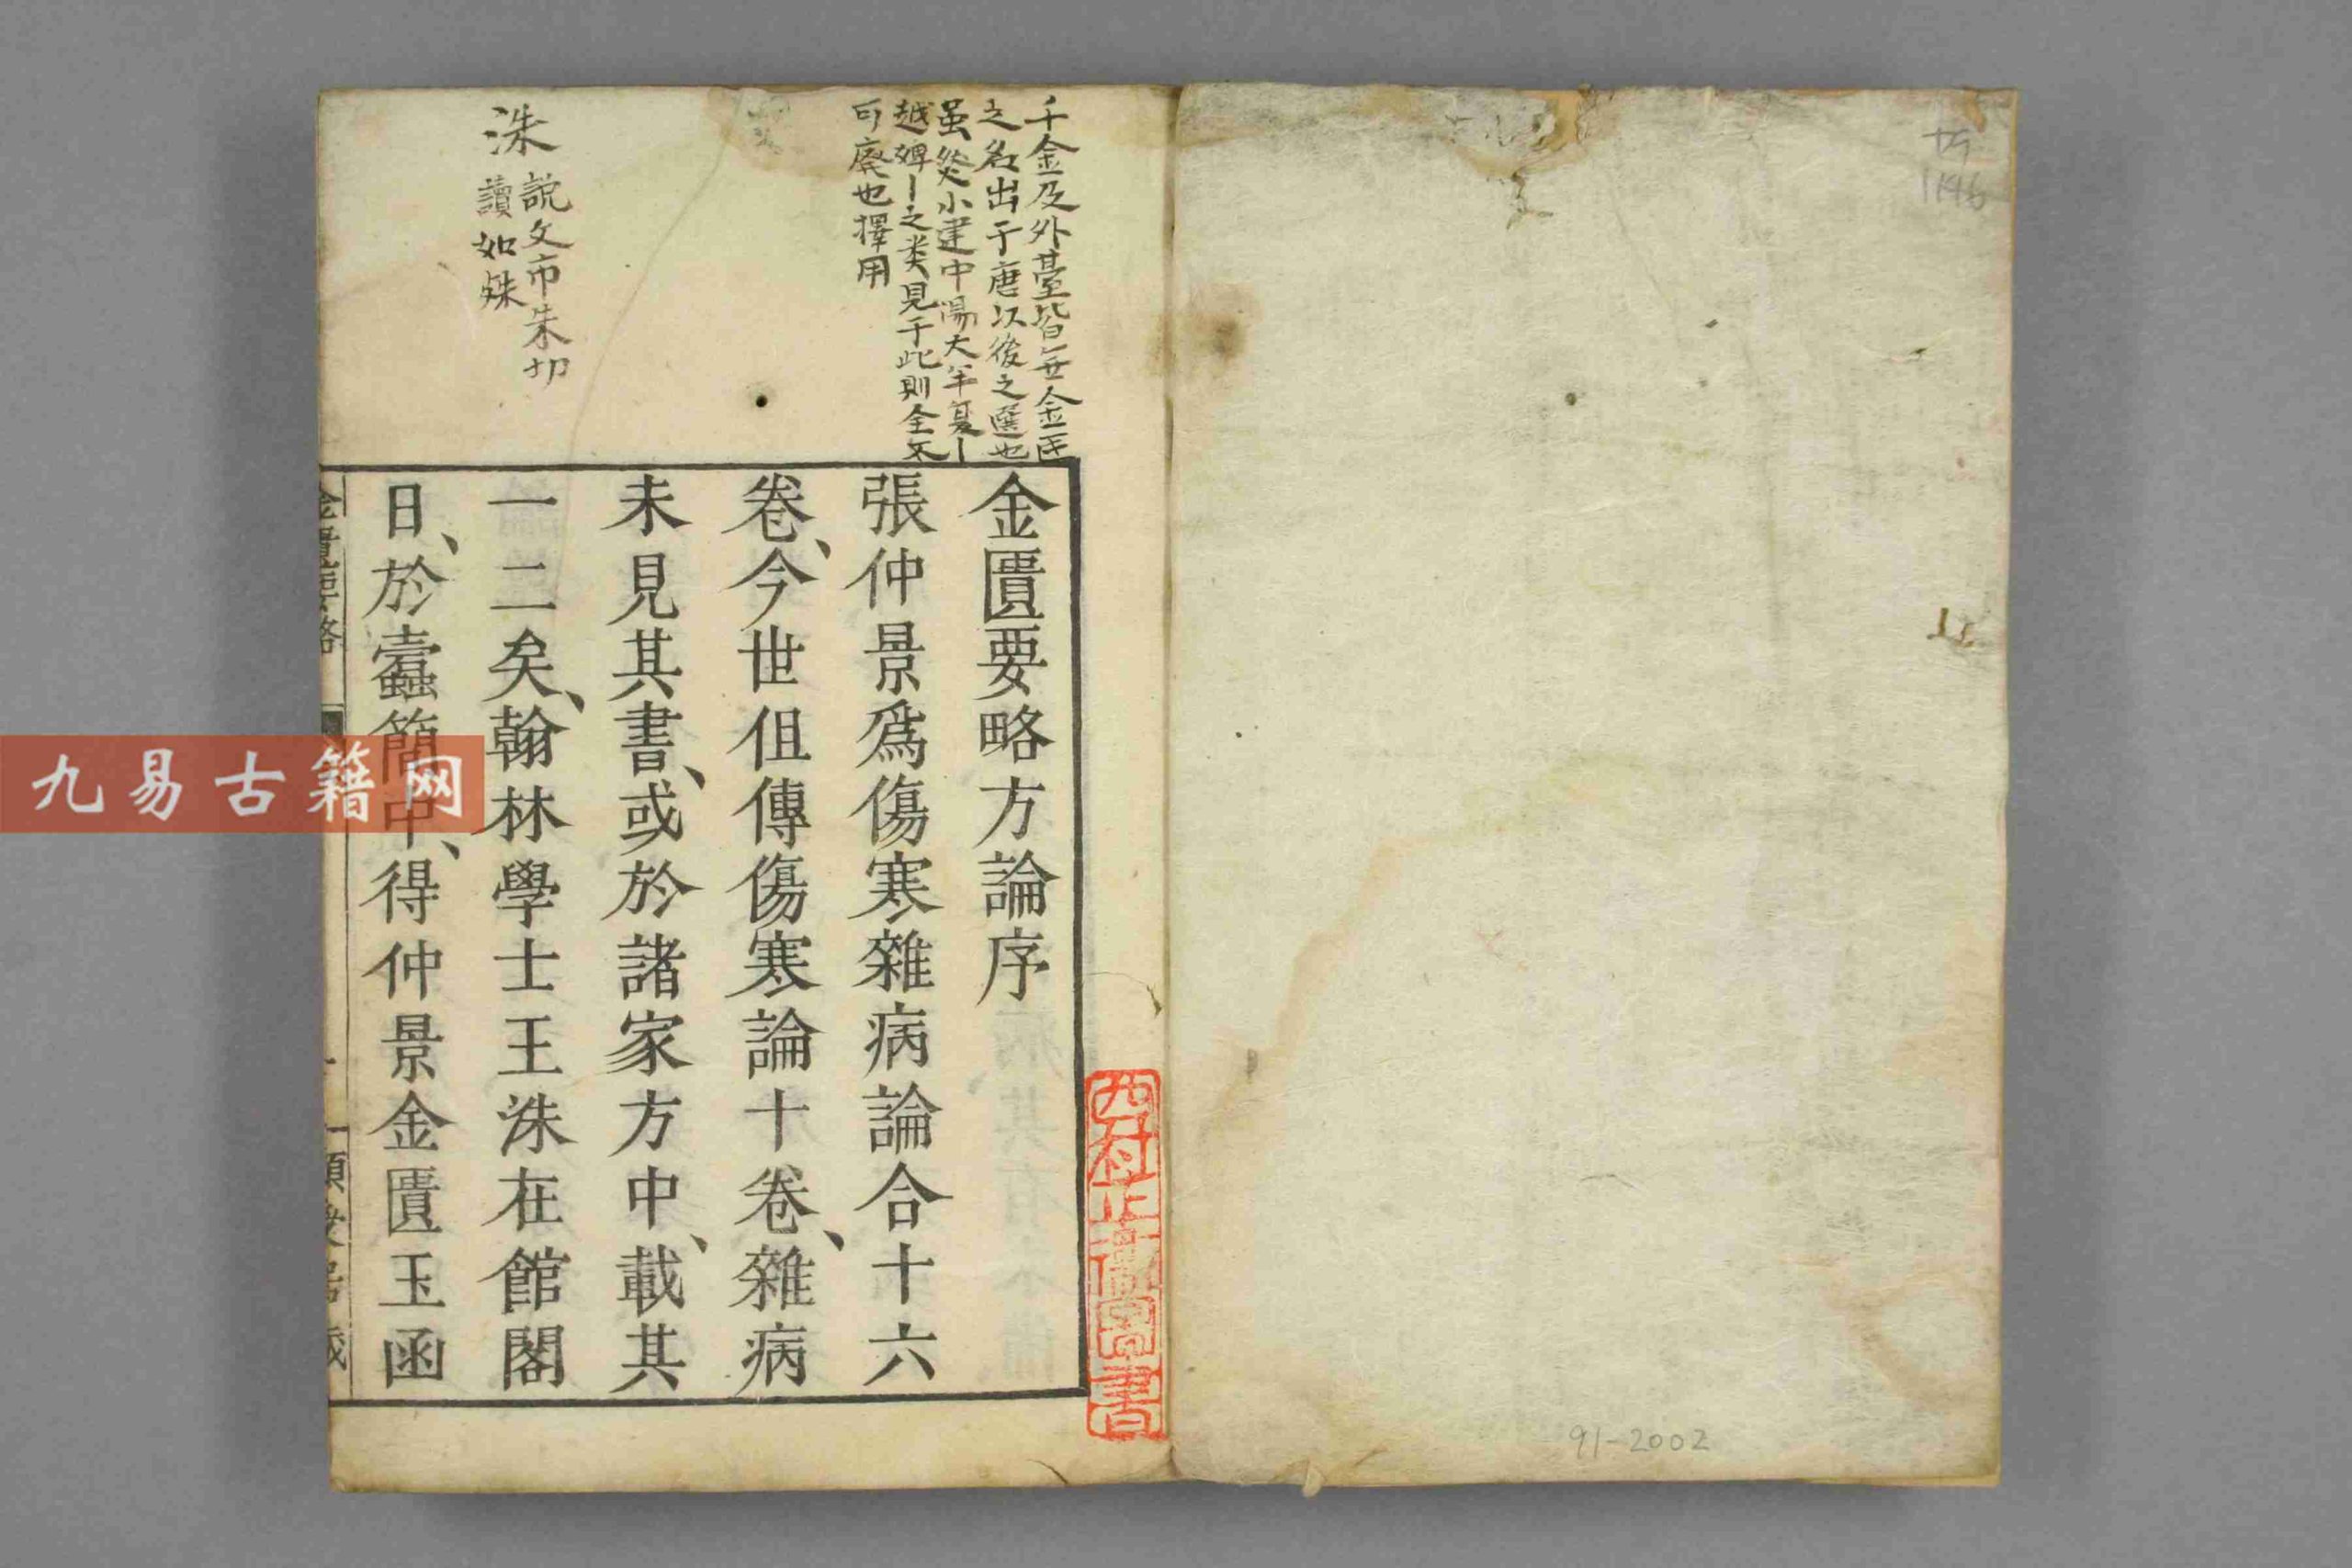 金匱要略方論序
張仲景爲傷寒雜病論合十六
卷、今世但傳傷寒論十卷、雜病
未見其書、或於諸家方中、載其
一二矣、翰林學士王洙在館閣
日、於蠹簡中、得仲景金匱玉函
千金及外臺皆無金匱
之名出于唐以後之選也
虽然小建中湯大半夏丨
越婢丨之类見于此則全不
可廃也擇用
洙
説文市朱切
讀如殊
金匱要略
九易古籍网
圖書
91-2002